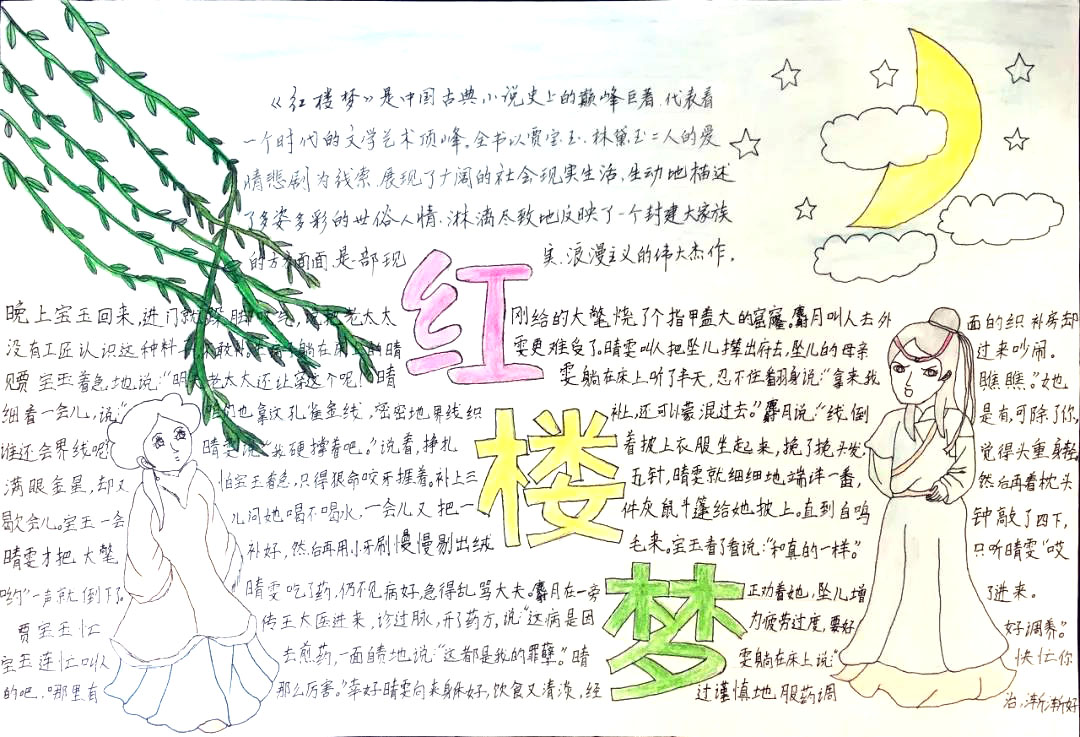 《红楼梦》是中国古典小说史上的巅峰巨著,代表着
一个时代的文学艺术顶峰。全书以贾宝玉、林黛玉二人的爱
情悲剧为线索,展现了广阔的社会现实生活,生动地描述
了多姿多彩的世俗人情,淋漓尽致地反映了一个封建大家族
的方方面面,是一部现实、浪漫主义的伟大杰作。
红楼梦
晚上宝玉回来,进门就跺脚 老太太刚给的大氅烧了个指甲盖大的窟窿。麝月叫人去外面的织补房却
没有工匠认识这种料 躺在床上的晴雯更难受了。晴雯叫人把坠儿撵出府去,坠儿的母亲过来吵闹。
贾宝玉着急地说:“明天老太太还让穿这个呢!”晴雯躺在床上听了半天,忍不住翻身说:“拿来我瞧瞧。”她
细看一会儿,说:“咱们也拿孔雀金线,密密地界线织补上,还可以蒙混过去。”麝月说:“线倒是有,可除了你,
谁还会界线呢?”晴雯说:“我硬撑着吧。”说着,挣扎着披上衣服坐起来,挽了挽头发,觉得头重身轻,
满眼金星,却又怕宝玉着急,只得狠命咬牙捱着。补上三五针,晴雯就细细地端详一番,然后再看枕头
歇会儿。宝玉一会儿问她喝不喝水,一会儿又把一件灰鼠斗篷给她披上。直到自鸣钟敲了四下,
晴雯才把大氅补好,然后再用小牙刷慢慢剔出绒毛来。宝玉看了看说:“和真的一样。”只听晴雯“哎
哟”一声就倒下了。晴雯吃了药,仍不见病好,急得乱骂大夫。麝月在一旁正劝着她,坠儿 了进来。
贾宝玉忙传王太医进来,诊过脉,开了药方,说:“这病是因为疲劳过度,要好好调养。”
宝玉连忙叫人去煎药,一面自责地说:“这都是我的罪孽。”晴雯躺在床上说:“快忙你
的吧,哪里有那么厉害。”幸好晴雯向来身体好,饮食又清淡,经过谨慎地服药调治,渐渐好